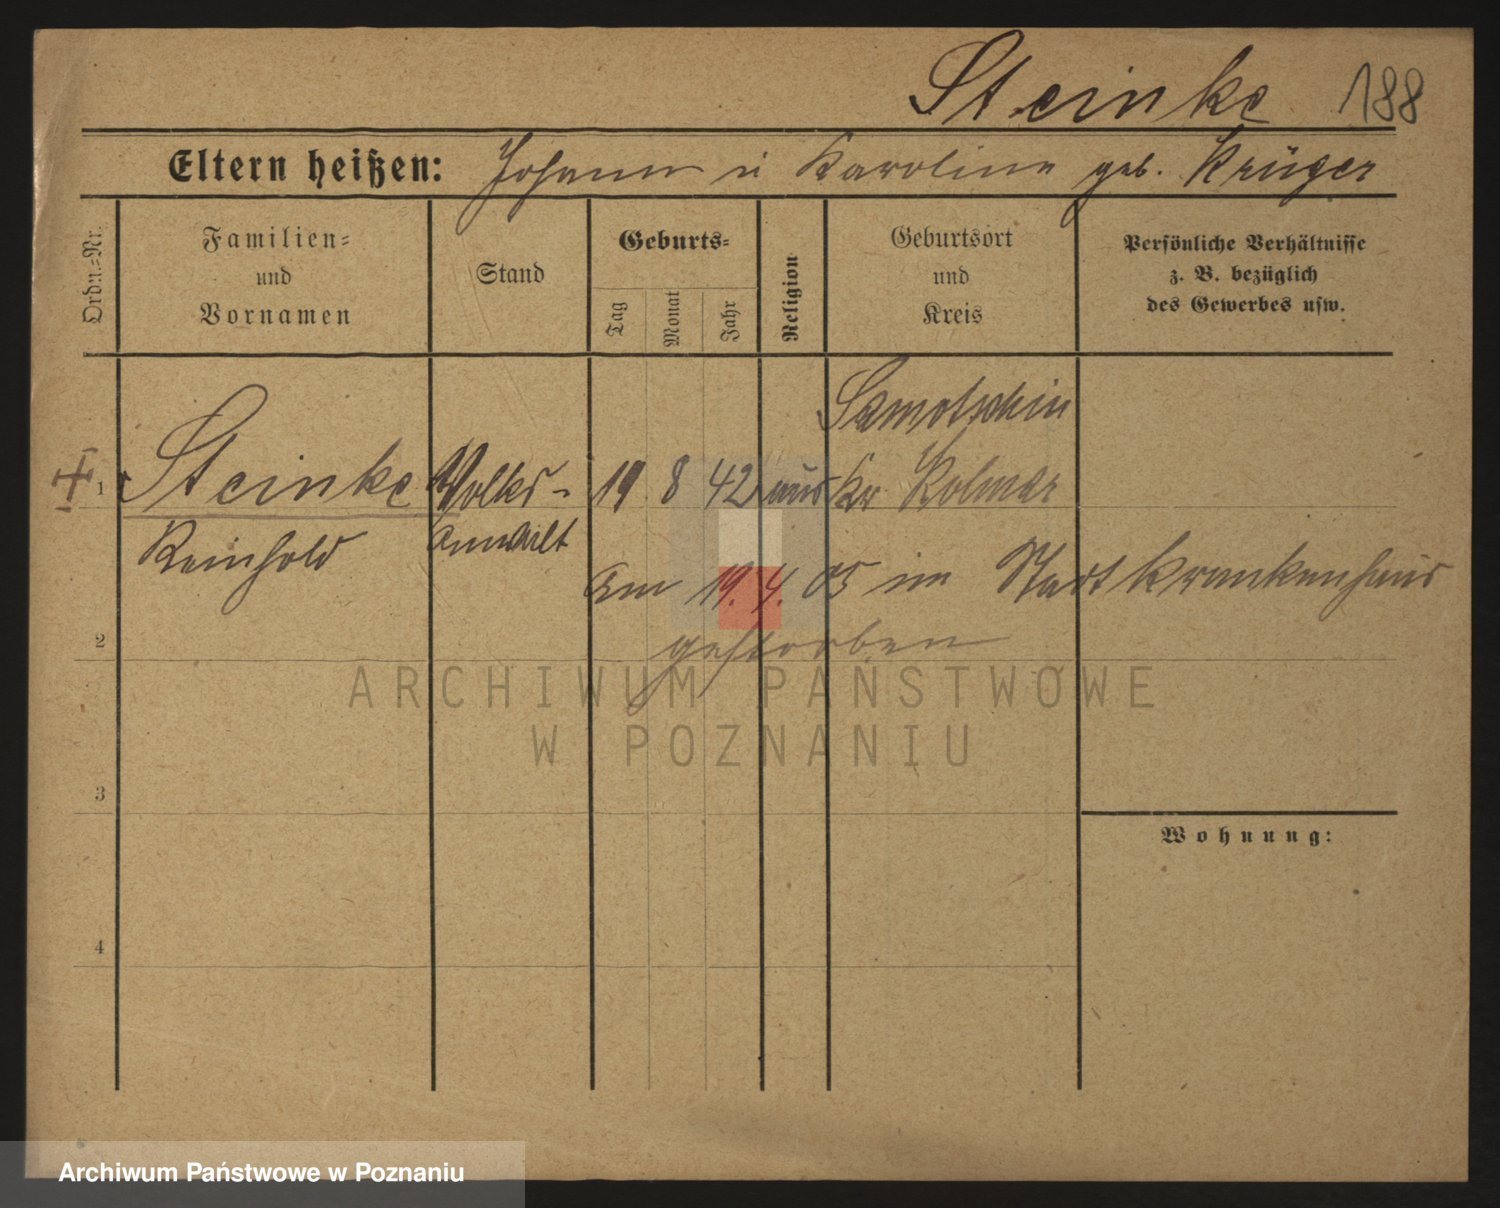 Steinke 188
Eltern heißen: Johann u Karoline geb. Krüger
Ordn.-Nr.
Familien-
und
Vornamen
Stand
Geburts-
Tag
Monat
Jahr
Religion
Geburtsort
und
Kreis
Persönliche Verhältnisse
z. B. bezüglich
des Gewerbes usw.
Samotschin
1 Steinke Volks- 19 8 42 Kr Kolmar
Reinhold anwalt
Am 19. 4. 05 im Stadtkrankenhaus
2 gestorben
ARCHIWUM PAŃSTWOWE
W POZNANIU
3
Wohnung:
4
Archiwum Państwowe w Poznaniu